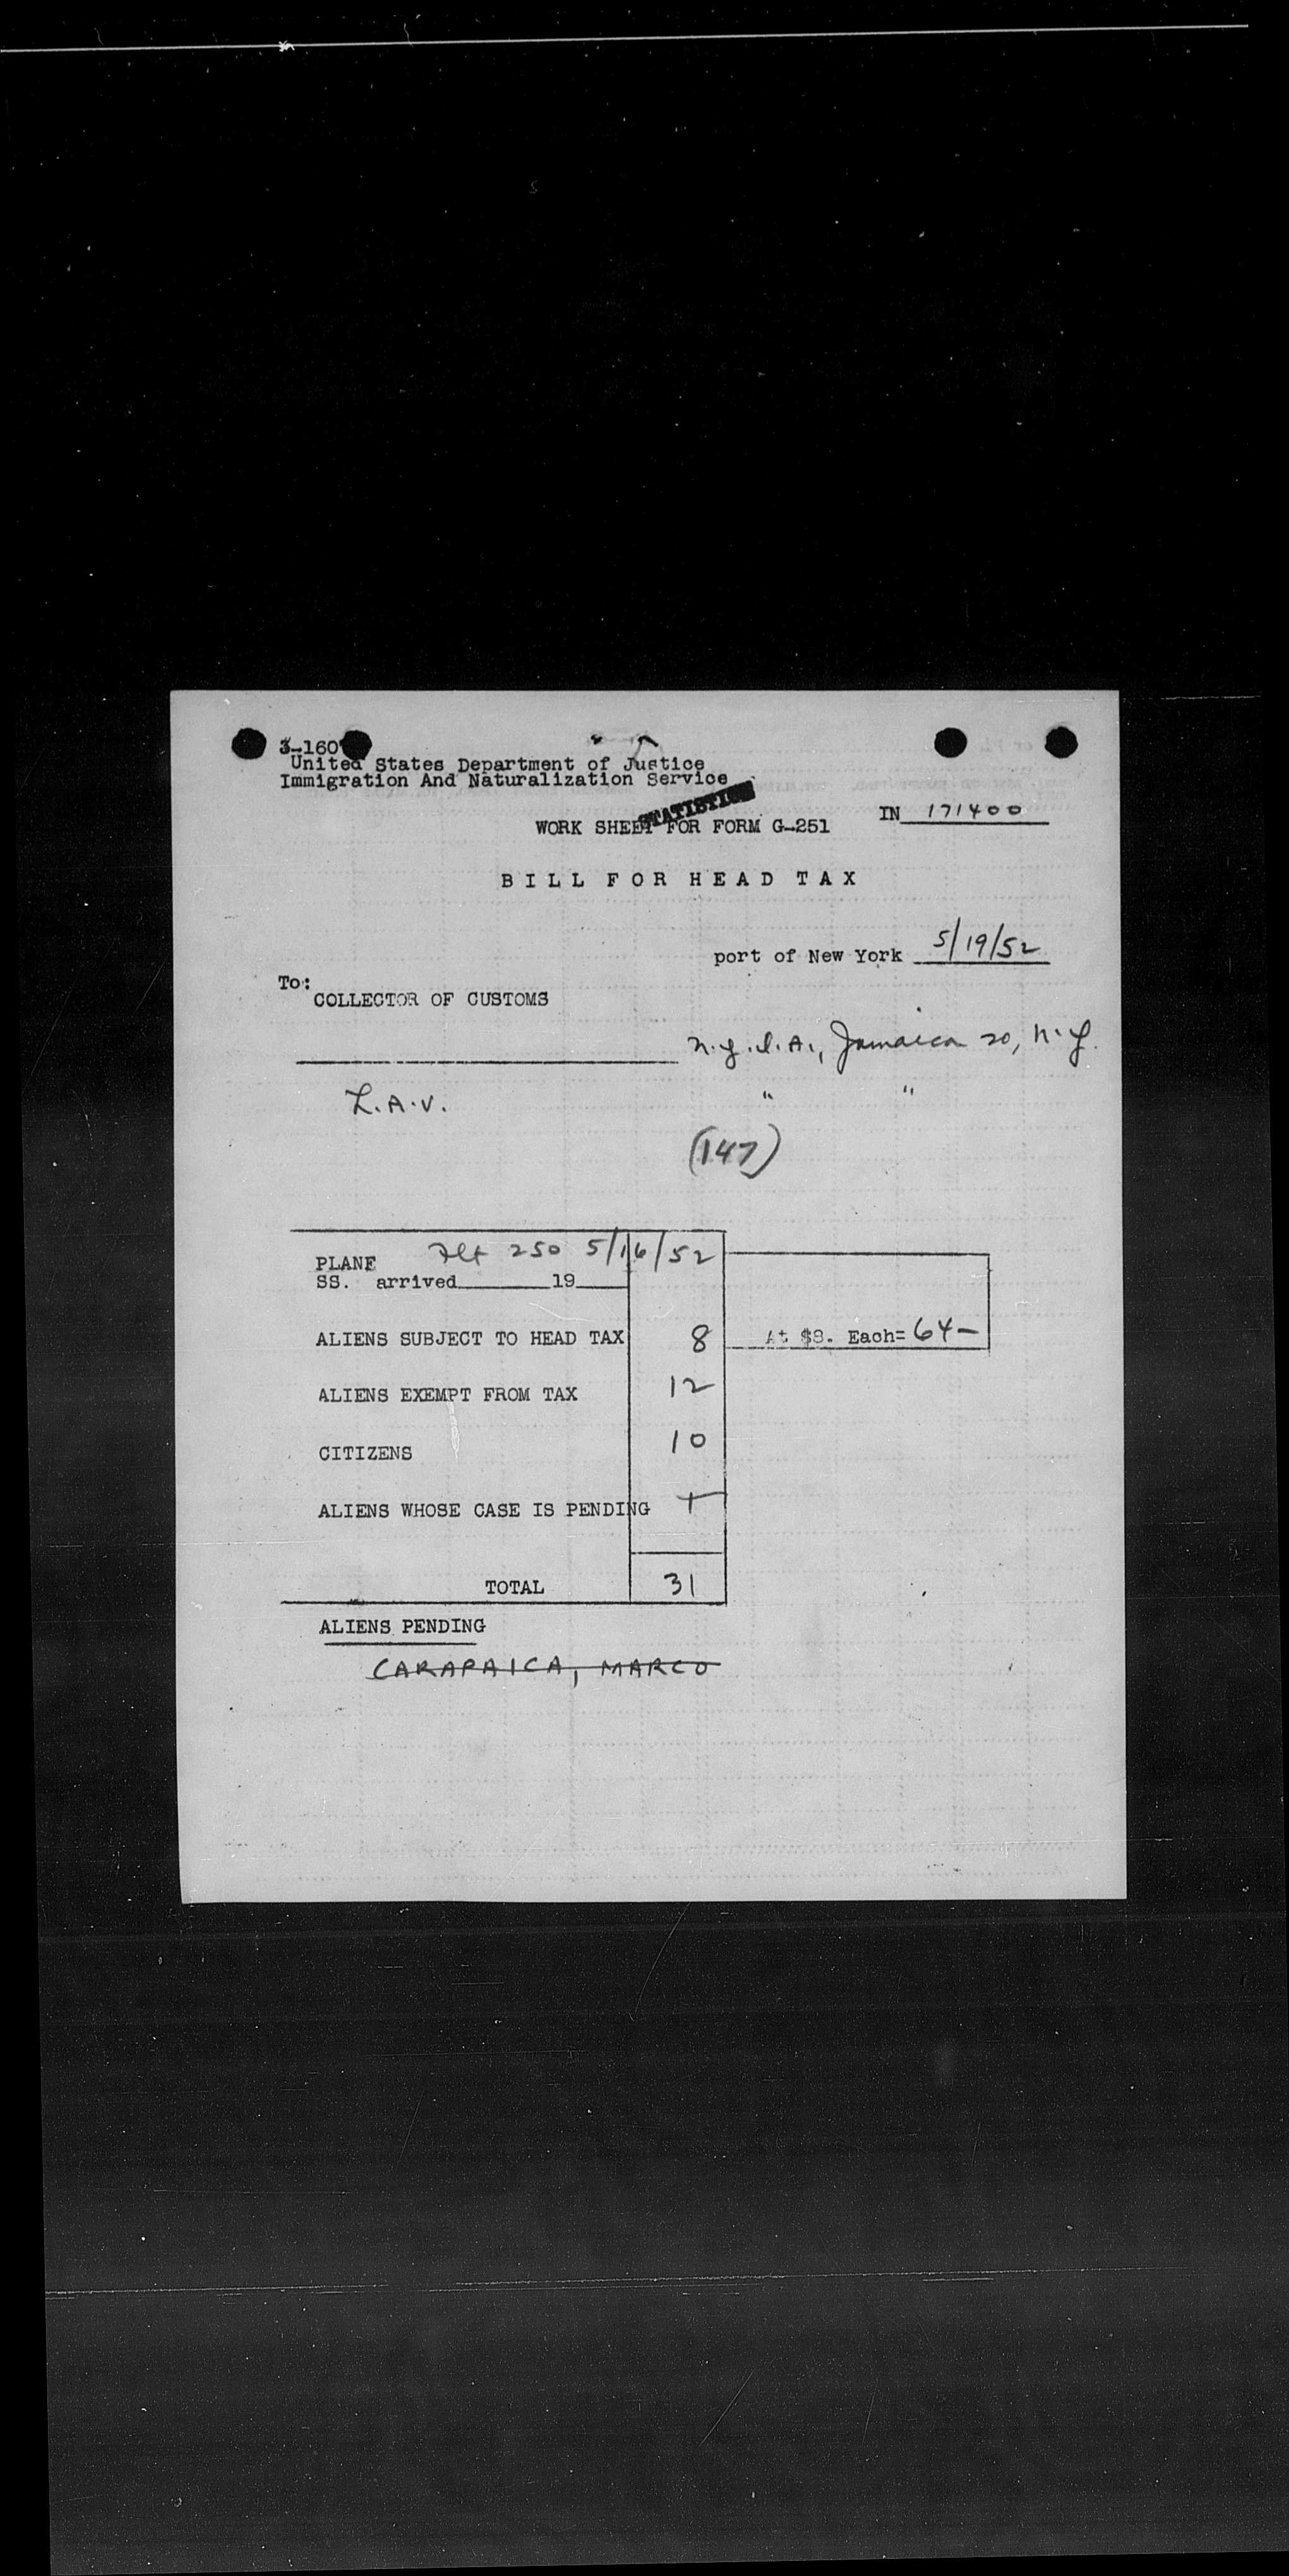 3-160
United States Department of Justice
Immigration And Naturalization Service
STATISTICS
WORK SHEET FOR FORM G-251
IN 171400
BILL FOR HEAD TAX
port of New York 5/19/52
To:
COLLECTOR OF CUSTOMS
N.Y.I.A., Jamaica 20, N.Y.
L.A.V. " "
(147)
PLANE Flt 250 5/16/52
SS. arrived 19
ALIENS SUBJECT TO HEAD TAX 8 At $8. Each= 64-
ALIENS EXEMPT FROM TAX 12
CITIZENS 10
ALIENS WHOSE CASE IS PENDING
TOTAL 31
ALIENS PENDING
CARAPAICA, MARCO